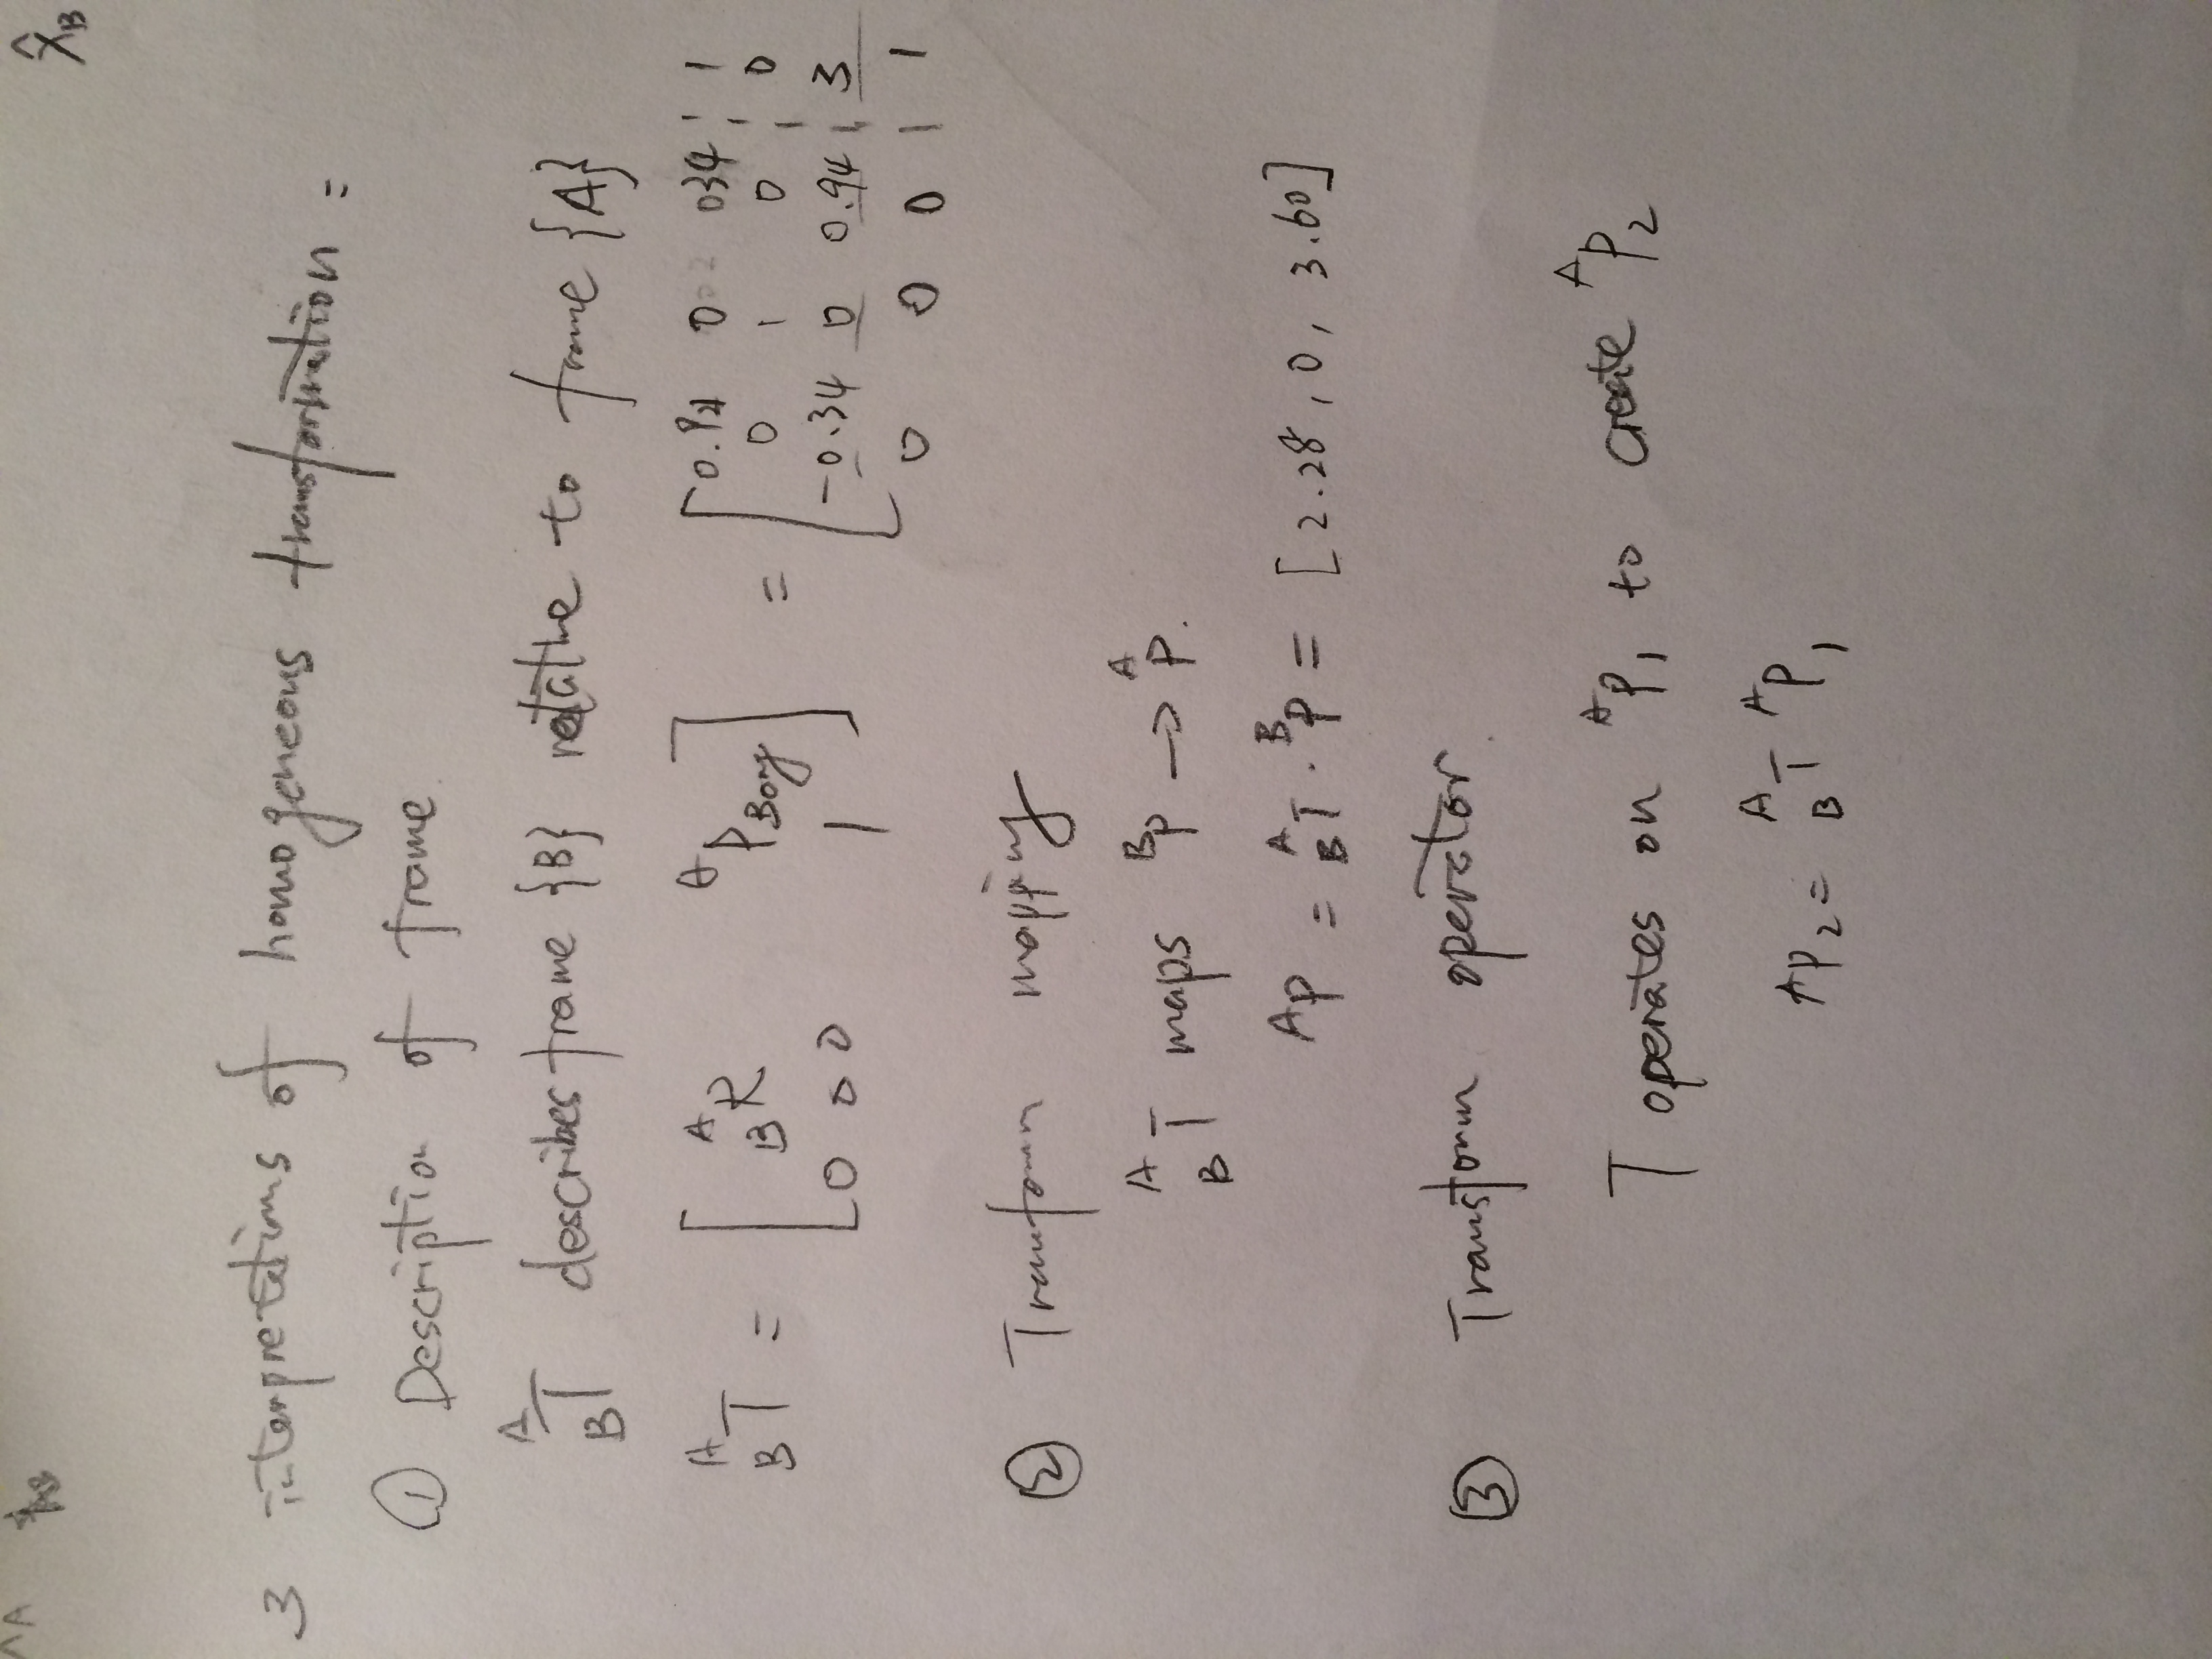 X̂B
3 interpretations of homogeneous transformation =
① Description of frame
A B T describes frame {B} relative to frame {A}
A B T = [ A B R   A P Borg ; 0 0 0   1 ] = [ 0.94 0 0.34 | 1
0 1 0 | 0
-0.34 0 0.94 | 3
0 0 0 | 1
② Transform mapping
A B T maps B P → A P.
A P = A B T · B P = [2.28, 0, 3.60]
③ Transform operator
T operates on A P1 to create A P2
A P2 = A B T A P1